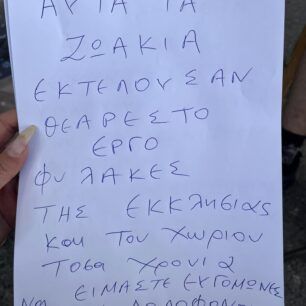 ΑΥΤΑ ΤΑ
ΖΩΑΚΙΑ
ΕΚΤΕΛΟΥΣΑΝ
ΘΕΑΡΕΣΤΟ
ΕΡΓΟ
ΦΥΛΑΚΕΣ
ΤΗΣ ΕΚΚΛΗΣΙΑς
ΚΑΙ ΤΟΥ ΧΩΡΙΟΥ
ΤΟΣΑ ΧΡΟΝΙΑ
ΕΙΜΑΣΤΕ ΕΥΓΟΜΩΝΕΣ
Να